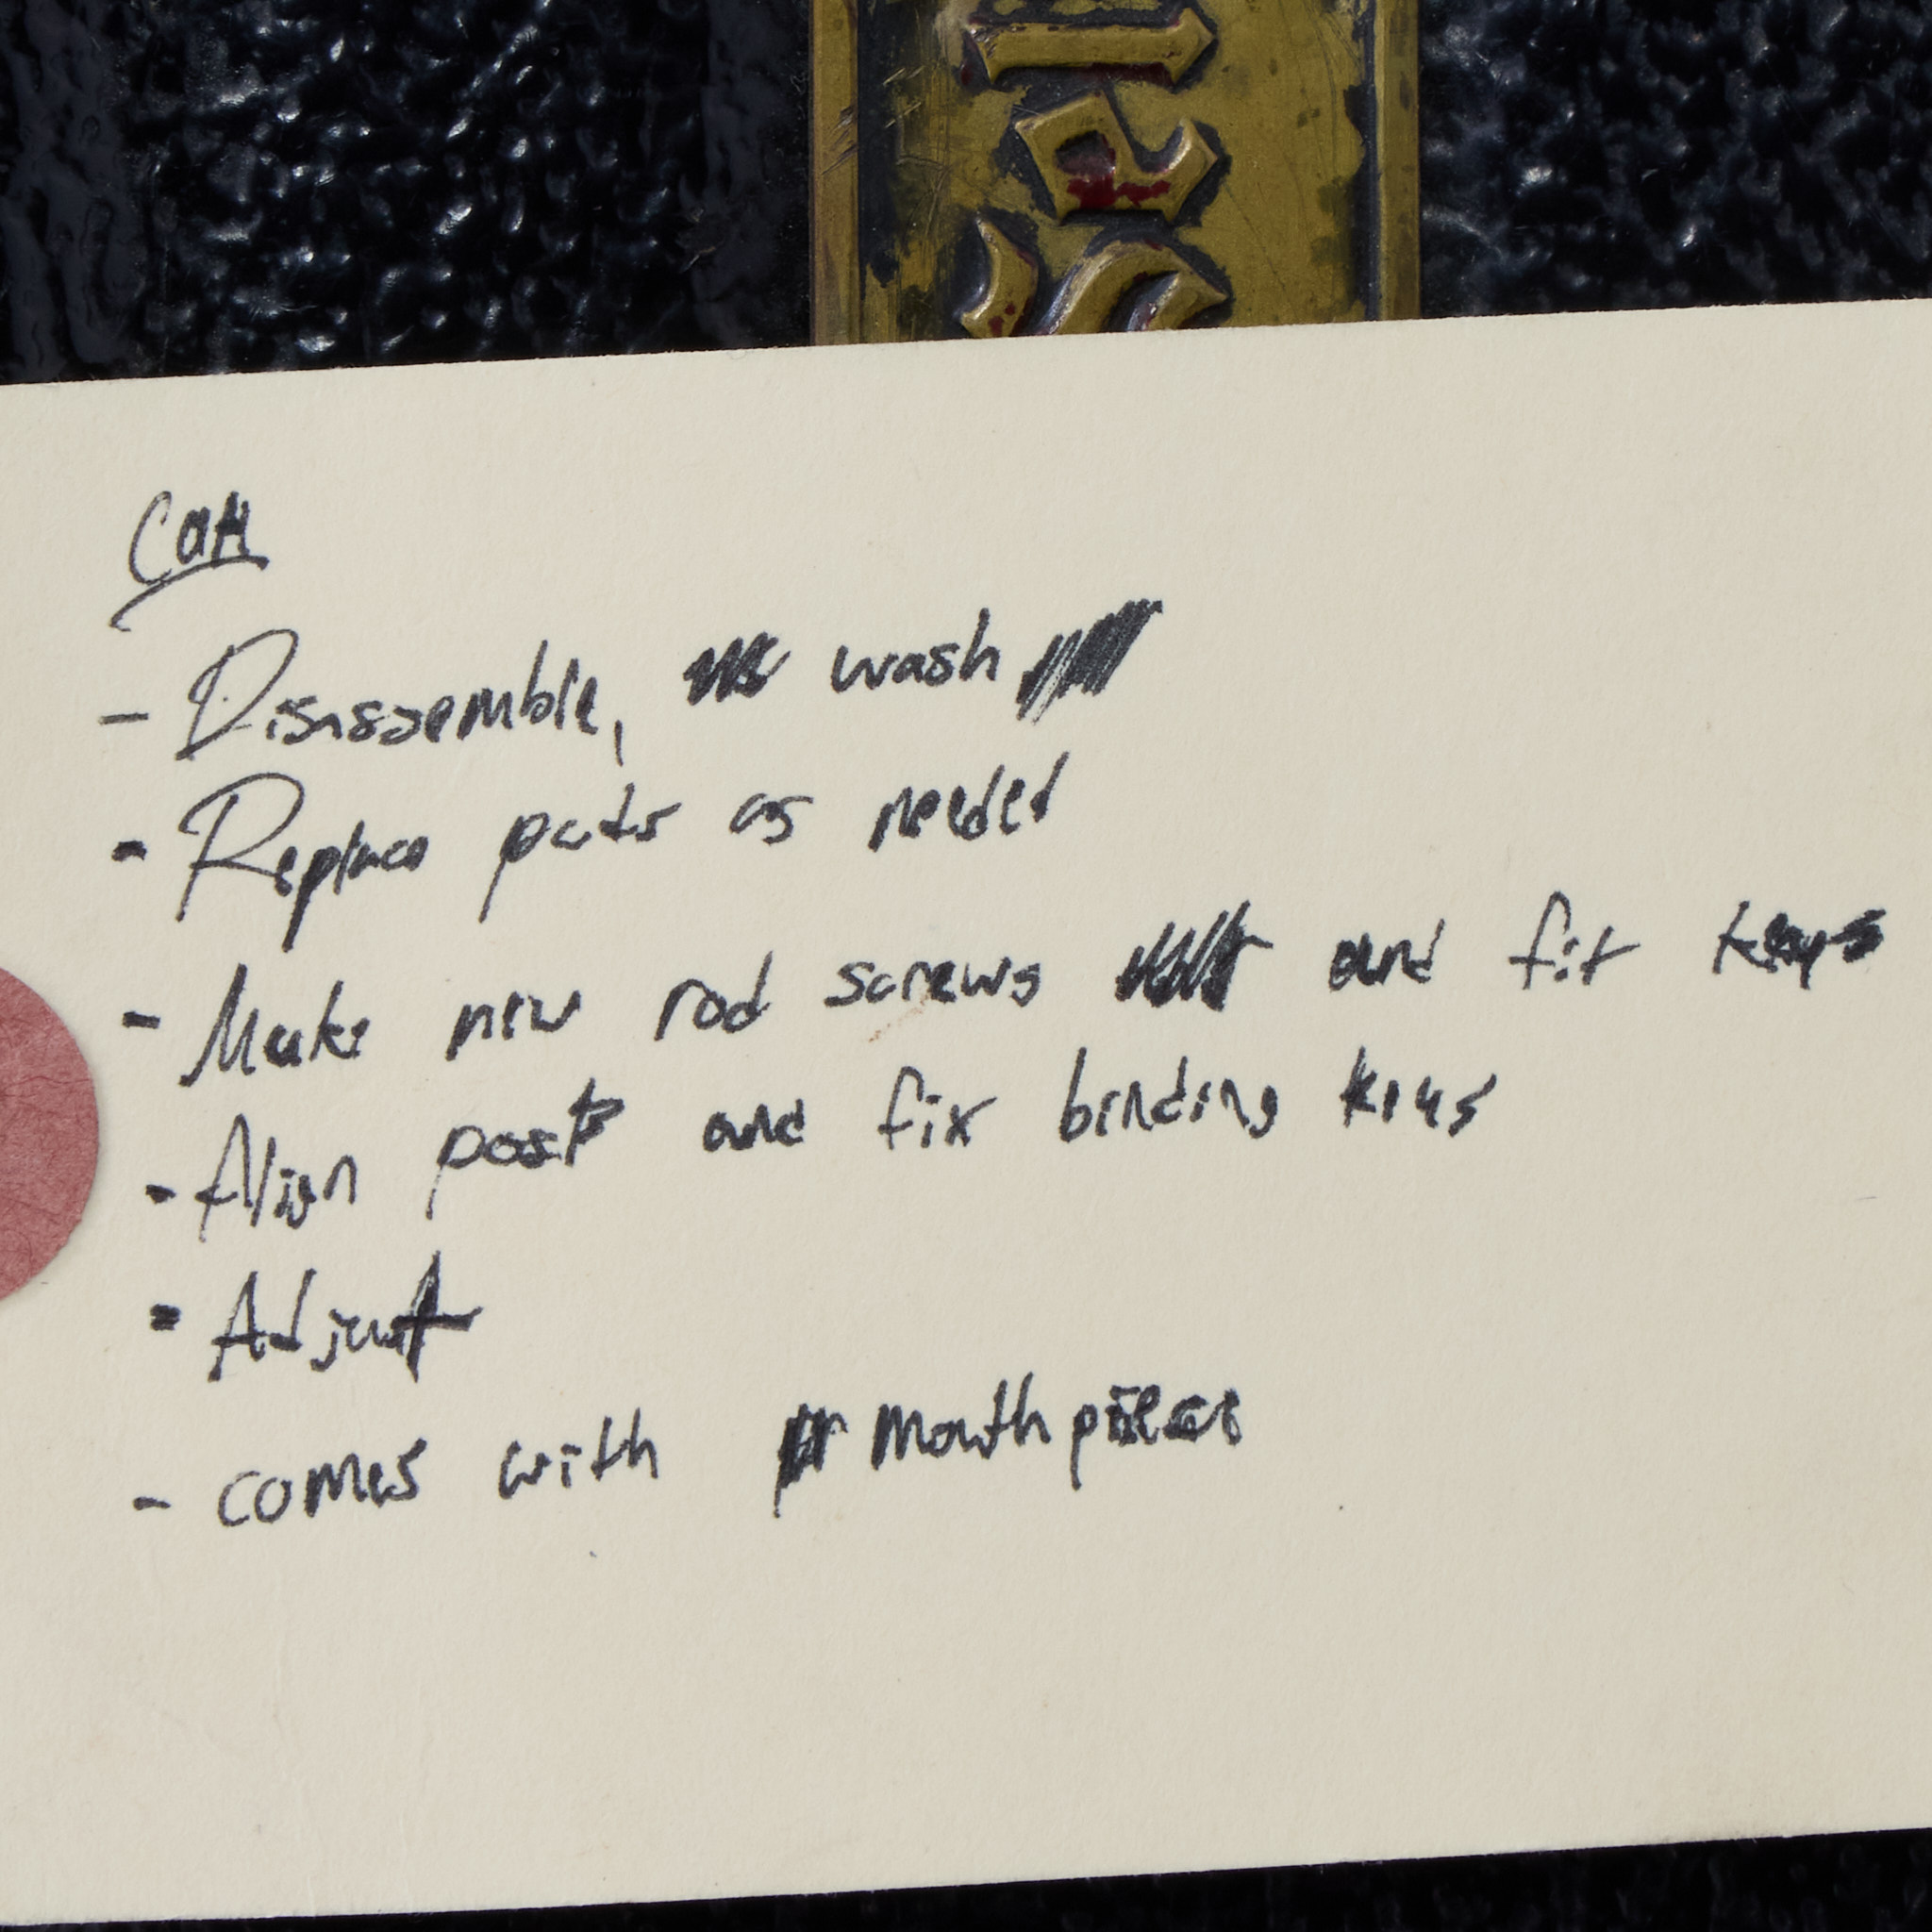 - Disassemble, wash
- Replace pads as needed
- Make new rod screws and fit keys
- Align posts and fix binding keys
- Adjust
- comes with mouthpiece